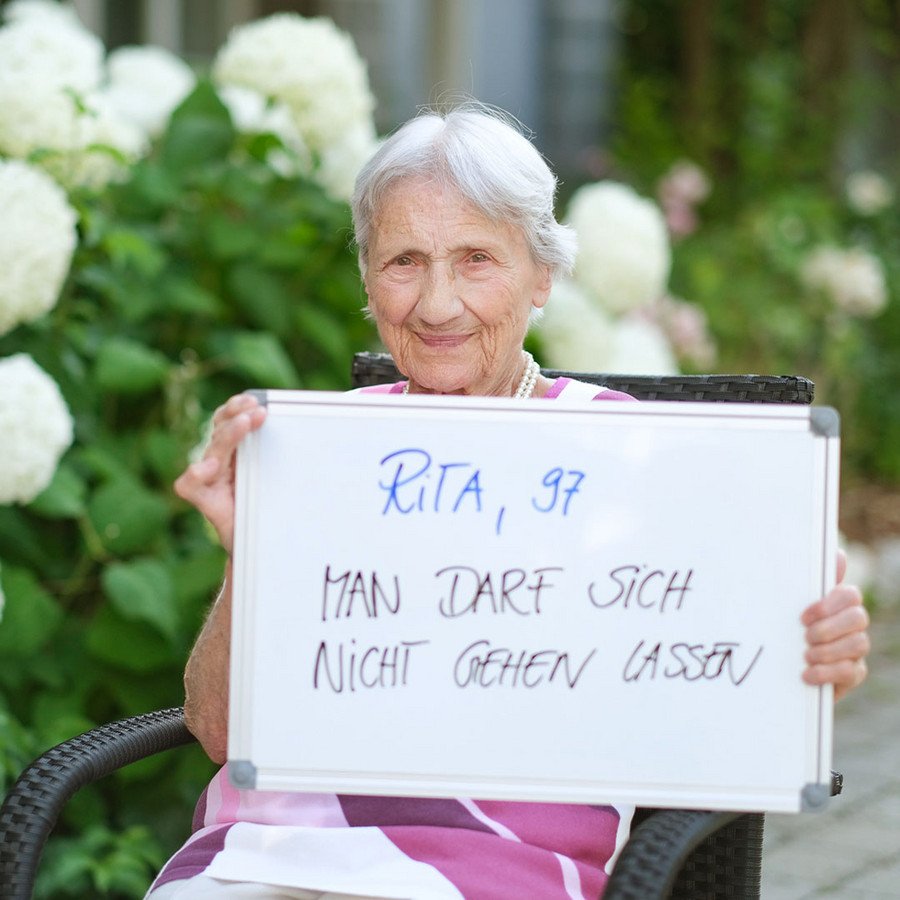 RiTA, 97
MAN DARF SiCH
NiCHT GEHEN LASSEN